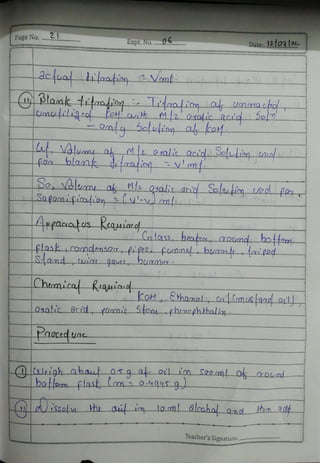 Page No. 21
Expt. No. 06
Date. 12/07/22
actual titration = V ml.
(ii) Blank titration :- Titration of unreacted,
unutilized KOH with M/2 oxalic acid Soln
- only Solution of KOH.
Let. Volume of M/2 oxalic acid Solution used
for blank titration = V' ml.
So, Volume of M/2 oxalic acid Solution used for,
Saponification = (V'-V) ml.
Apparatus Required
Glass, beaker, round bottom
flask, condenser, pipet, funnel, burette, tripod
Stand, wire gauze, burner.
Chemical Required
KOH, Ethanol, oil (mustard oil),
oxalic acid, pumic Stone, phenophthalin.
Procedure
(i) Weigh about 0.5 g of oil in 500 ml of round
bottom flask (m = 0.4945 g)
(ii) Dissolve the oil in 10 ml alcohol and then add
Teacher's Signature: